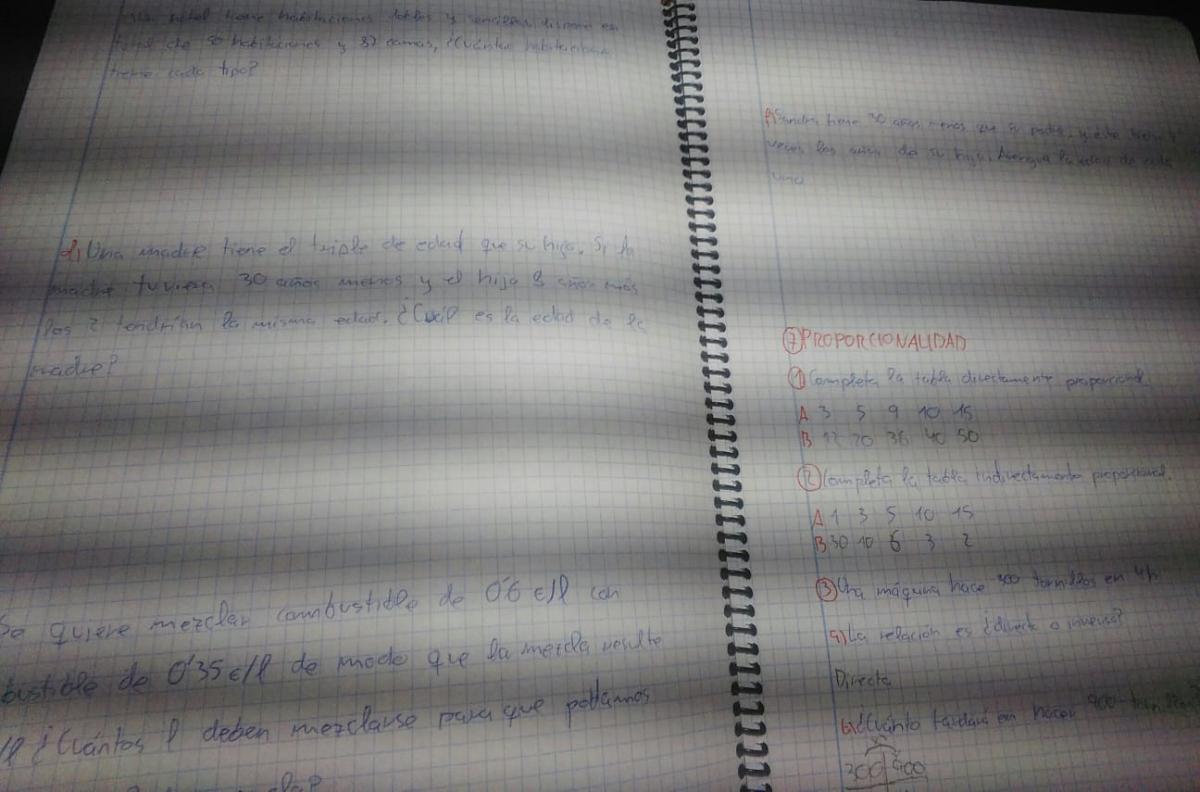 hotel tiene habitaciones dobles y sencillas, dispone en
total de 50 habitaciones y 87 camas, ¿Cuántas habitaciones
tiene cada tipo?
d) Una madre tiene el triple de edad que su hijo. Si la
madre tuviera 30 años menos y el hijo 8 años más
los 2 tendrían la misma edad. ¿Cuál es la edad de la
madre?
Se quiere mezclar combustible de 0'6 €/l con
bustible de 0'35 €/l de modo que la mezcla resulte
¿Cuántos l deben mezclarse para que podamos
f) Sandra tiene 30 años menos que su padre, y éste tiene 4
veces los años de su hija. Averigua la edad de cada
uno
⑦ PROPORCIONALIDAD
① Completa la tabla directamente proporcional.
A 3 5 9 10 15
B 12 20 36 40 50
② Completa la tabla indirectamente proporcional.
A 1 3 5 10 15
B 30 10 6 3 2
③ Una máquina hace 300 tornillos en 4h
a) La relación es ¿directa o inversa?
Directa
b) ¿Cuánto tardará en hacer 900 tornillos
300 900